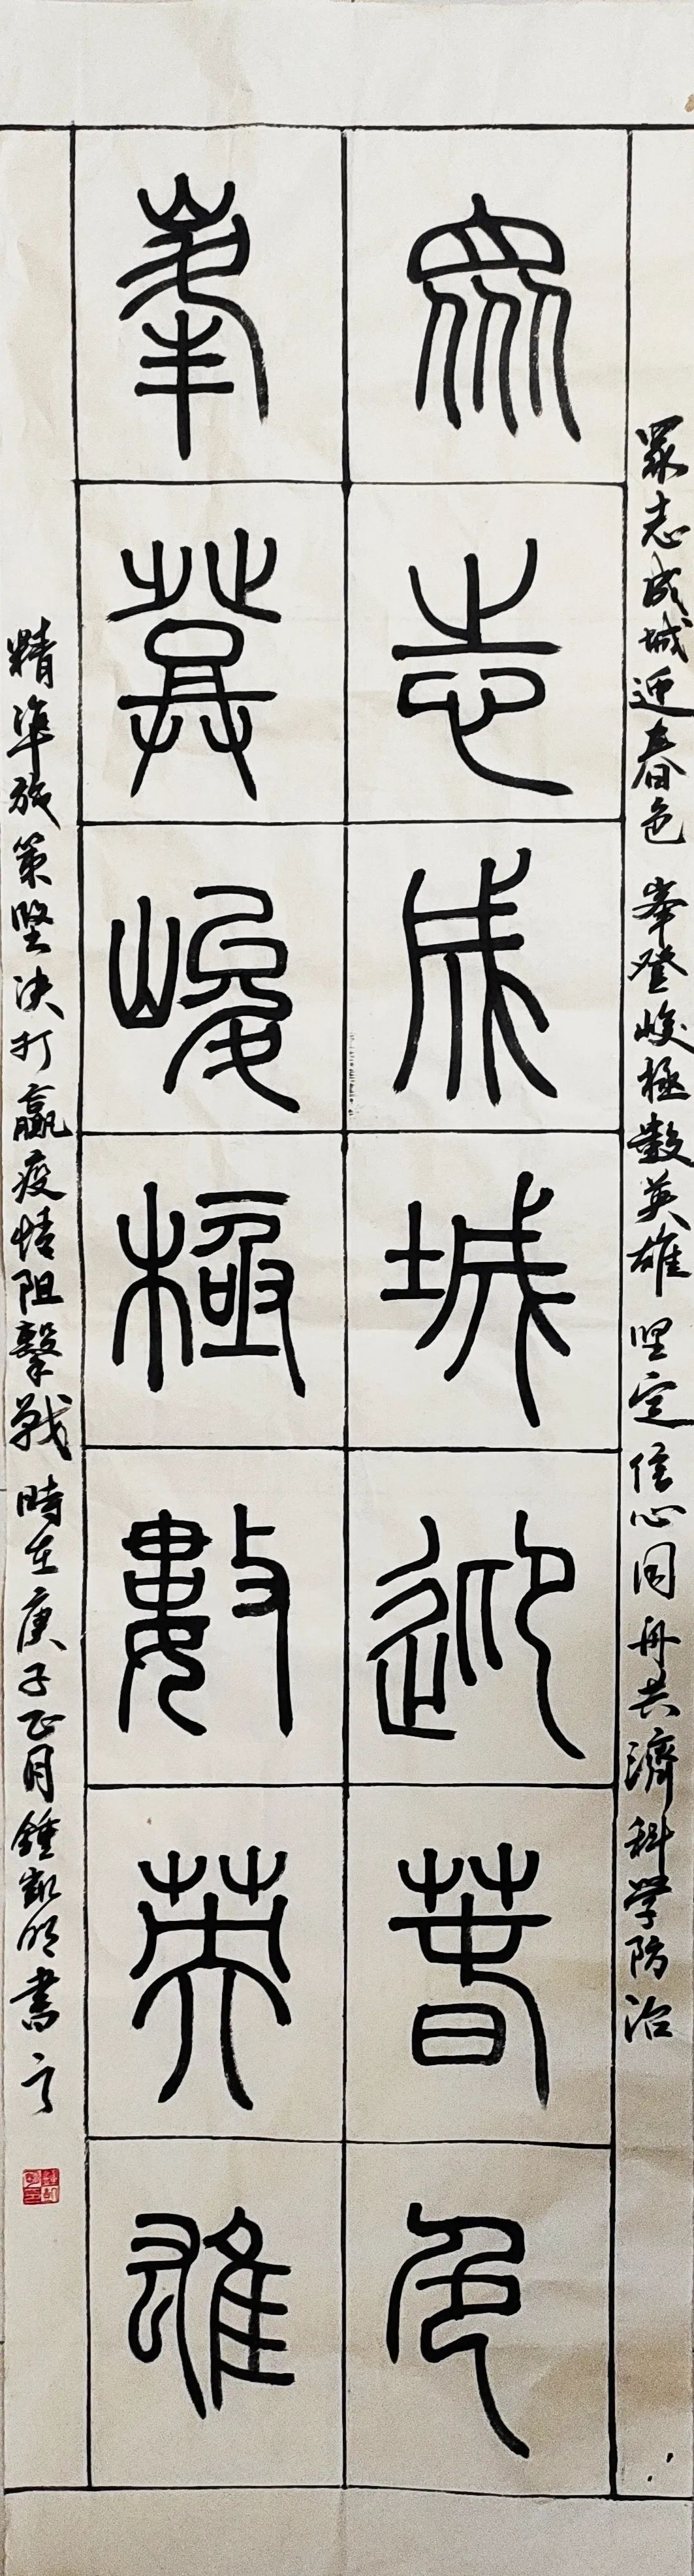 眾志成城迎春色 峯登峻極數英雄 坚定信心同舟共濟科学防治
眾志成城迎春色
峯登峻極數英雄
精準施策堅決打贏疫情阻擊戰 時在庚子正月鍾凱明書